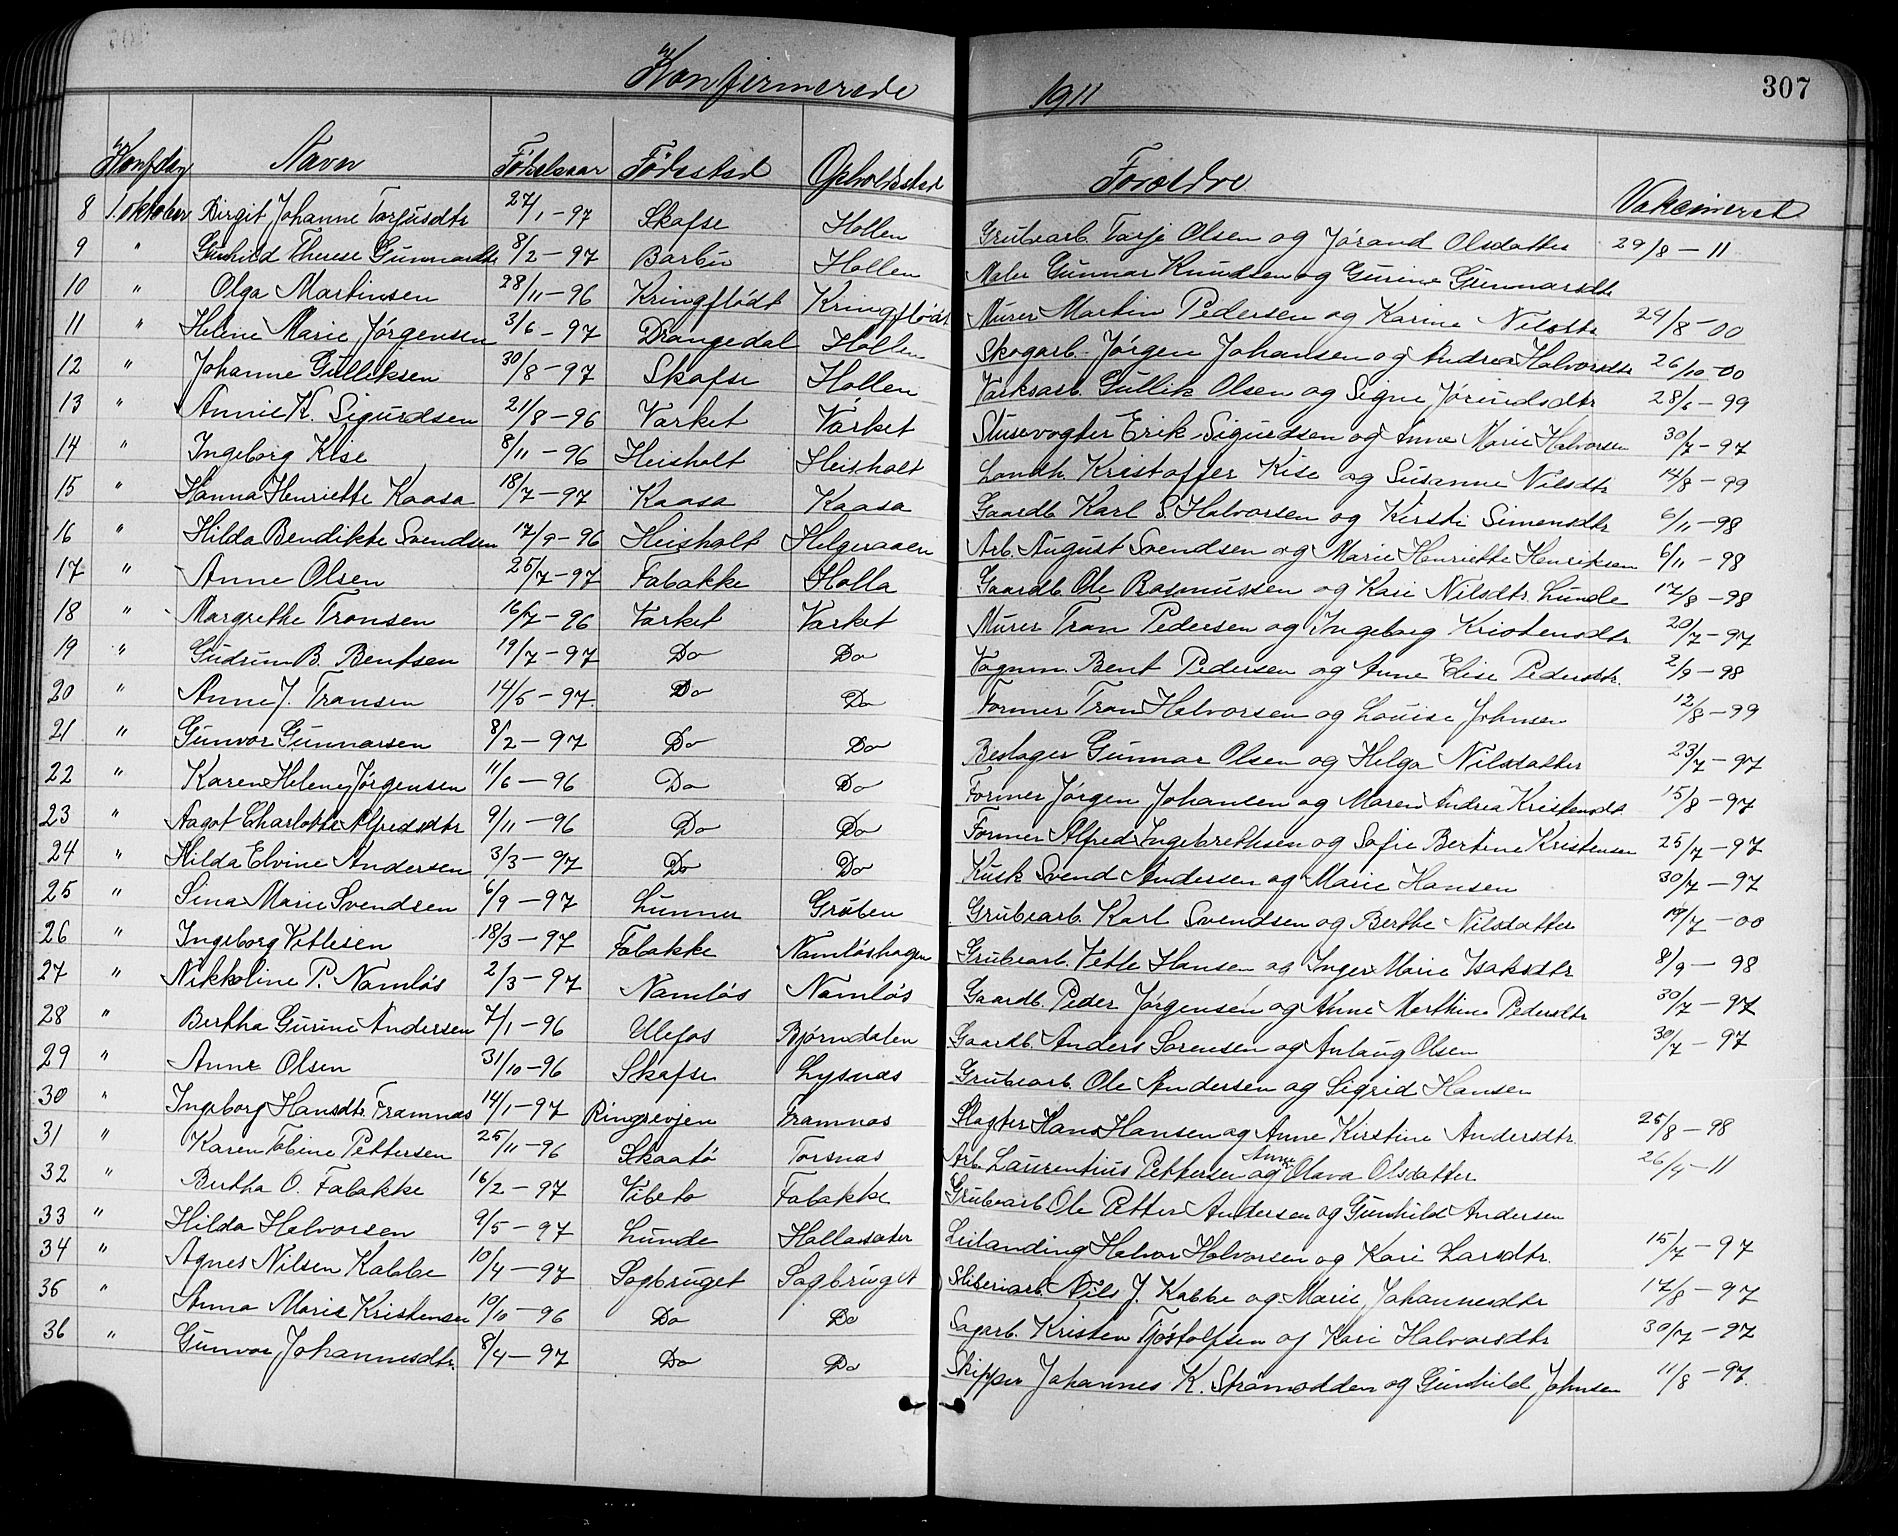 Konfirmerede 1911 307
Konfdag Navn Fødselsaar Fødested Opholdssted Foreldre Vakcineret
8 1. oktober Birgit Johanne Tarjusdtr 27/1-97 Skafse Hollen Grubearb. Tarje Olsen og Jørand Olsdatter 29/8-11
9 " Gunhild Therese Gunnarsdtr 8/2-97 Barbu Hollen Maler Gunnar Knudsen og Gurine Gunnarsdtr
10 " Olga Martinsen 28/11-96 Kringflødt Kringflødt Murer Martin Pedersen og Karine Nilsdtr 24/8-00
11 " Helene Marie Jørgensen 3/6-97 Drangedal Hollen Skogarb. Jørgen Johansen og Andrea Halvorsdtr 26/10-00
12 " Johanne Gulliksen 30/8-97 Skafse Hollen Værksarb. Gullik Olsen og Signe Jørundsdtr 28/6-99
13 " Annie K. Sigurdsen 21/8-96 Værket Værket Slusevogter Erik Sigurdsen og Anne Marie Halvorsen 30/7-97
14 " Ingeborg Kise 8/11-96 Heisholt Heisholt Landh. Kristoffer Kise og Susanne Nilsdtr 14/8-99
15 " Hanna Henriette Kaasa 18/7-97 Kaasa Kaasa Gaardb. Karl S. Halvorsen og Kirsti Simensdtr 6/11-98
16 " Hilda Bendikte Svendsen 17/9-96 Heisholt Helgeraaen Arb. August Svendsen og Marie Henriette Henriksen 6/11-98
17 " Anne Olsen 25/7-97 Fabakke Holla Gaardb. Ole Rasmussen og Kari Nilsdtr. Lunde 17/8-98
18 " Margrethe Transen 16/7-96 Værket Værket Murer Tran Pedersen og Ingeborg Kristensdtr 20/7-97
19 " Gudrun B. Bentsen 19/7-97 Do Do Vognm. Bent Pedersen og Anne Elise Pedersdtr. 2/9-98
20 " Anne J. Transen 14/5-97 Do Do Former Tran Halvorsen og Louise Johnsen 12/8-99
21 " Gunvor Gunnarsen 8/2-97 Do Do Beslager Gunnar Olsen og Helga Nilsdatter 23/7-97
22 " Karen Helene Jørgensen 11/6-96 Do Do Former Jørgen Johansen og Maren Andrea Kristensdt. 15/8-97
23 " Aagot Charlotte Alfredsdtr 9/11-96 Do Do Former Alfred Ingebrethsen og Sofie Bertine Kristensen 25/7-97
24 " Hilda Elvine Andersen 3/3-97 Do Do Kusk Svend Andersen og Marie Hansen 30/7-97
25 " Sina Marie Svendsen 6/9-97 Lunner Gruben Grubearb. Karl Svendsen og Berthe Nilsdatter 19/7-00
26 " Ingeborg Vetlesen 18/3-97 Fabakke Namløshagen Grubearb. Vetle Hansen og Inger Marie Isaksdtr 8/9-98
27 " Nikkoline P. Namløs 2/3-97 Namløs Namløs Gaardb. Peder Jørgensen og Anne Marthine Pedersdtr 30/7-97
28 " Bertha Gurine Andersen 7/1-96 Ulefos Bjørndalen Gaardb. Anders Sørensen og Anlaug Olsen 30/7-97
29 " Anne Olsen 31/10-96 Skafse Lysnæs Grubearb. Ole Andersen og Sigrid Hansen
30 " Ingeborg Hansdtr. Framnæs 14/1-97 Ringsevjen Framnæs Slagter Hans Hansen og Anne Kirstine Andersdtr 25/8-98
31 " Karen Tobine Pettersen 25/11-96 Skaatø Torsnæs Arb. Laurentius Pettersen og Anne Olava Olsdatter 26/4-11
32 " Bertha O. Fabakke 16/2-97 Vibeto Fabakke Grubearb. Ole Petter Andersen og Gunhild Andersen
33 " Hilda Halvorsen 9/5-97 Lunde Hollasæter Leilanding Halvor Halvorsen og Kari Larsdtr. 15/7-97
34 " Agnes Nilsen Kabbe 10/4-97 Sagbruget Sagbruget Sliberiarb. Nils J. Kabbe og Marie Johannesdtr 17/8-97
35 " Anna Marie Kristensen 10/10-96 Do Do Sagarb. Kristen Tjøstolfsen og Kari Halvorsdtr 30/7-97
36 " Gunvor Johannesdtr. 8/4-97 Do Do Skipper Johannes K. Strømodden og Gunhild Johnsen 11/8-97.